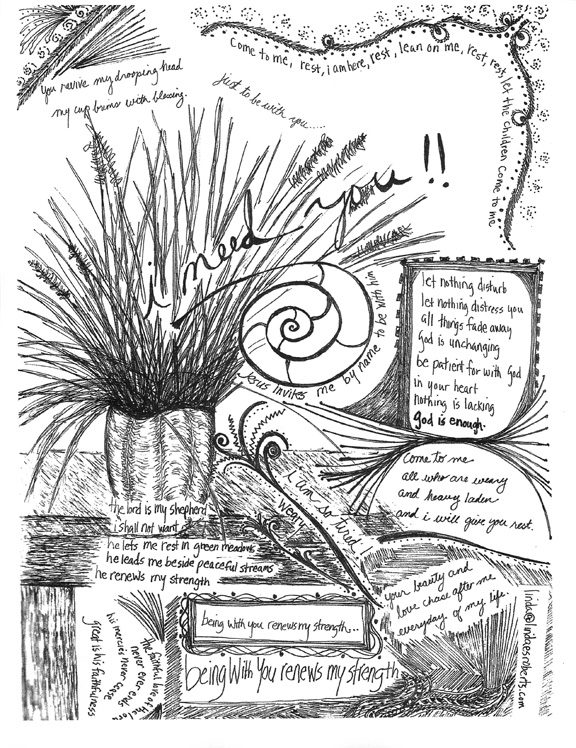 You revive my drooping head
my cup brims with blessing.
Come to me, rest, i am here, rest, lean on me, rest, rest, let the children come to me
just to be with you....
i need you!!
Jesus invites me by name to be with him
let nothing disturb
let nothing distress you
all things fade away
God is unchanging
be patient for with God
in your heart
nothing is lacking
god is enough.
Come to me
all who are weary
and heavy laden
and i will give you rest.
i am so tired
weary
the lord is my shepherd
i shall not want
he lets me rest in green meadows
he leads me beside peaceful streams
he renews my strength
your beauty and
love chase after me
everyday of my life
being with you renews my strength...
being With You renews my strength
the faithful love of the lord
never ever ends
his mercies never cease
great is his faithfulness
linda@lindaesroberts.com